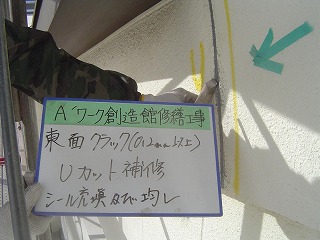 A'ワーク創造館修繕工事
東面 クラック(0.2mm以上)
Uカット補修
シール充填及び均し